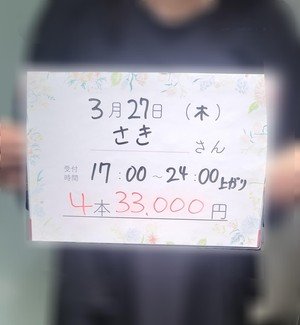 3月27日(木)
さき さん
受付時間 17:00~24:00上がり
4本33,000円